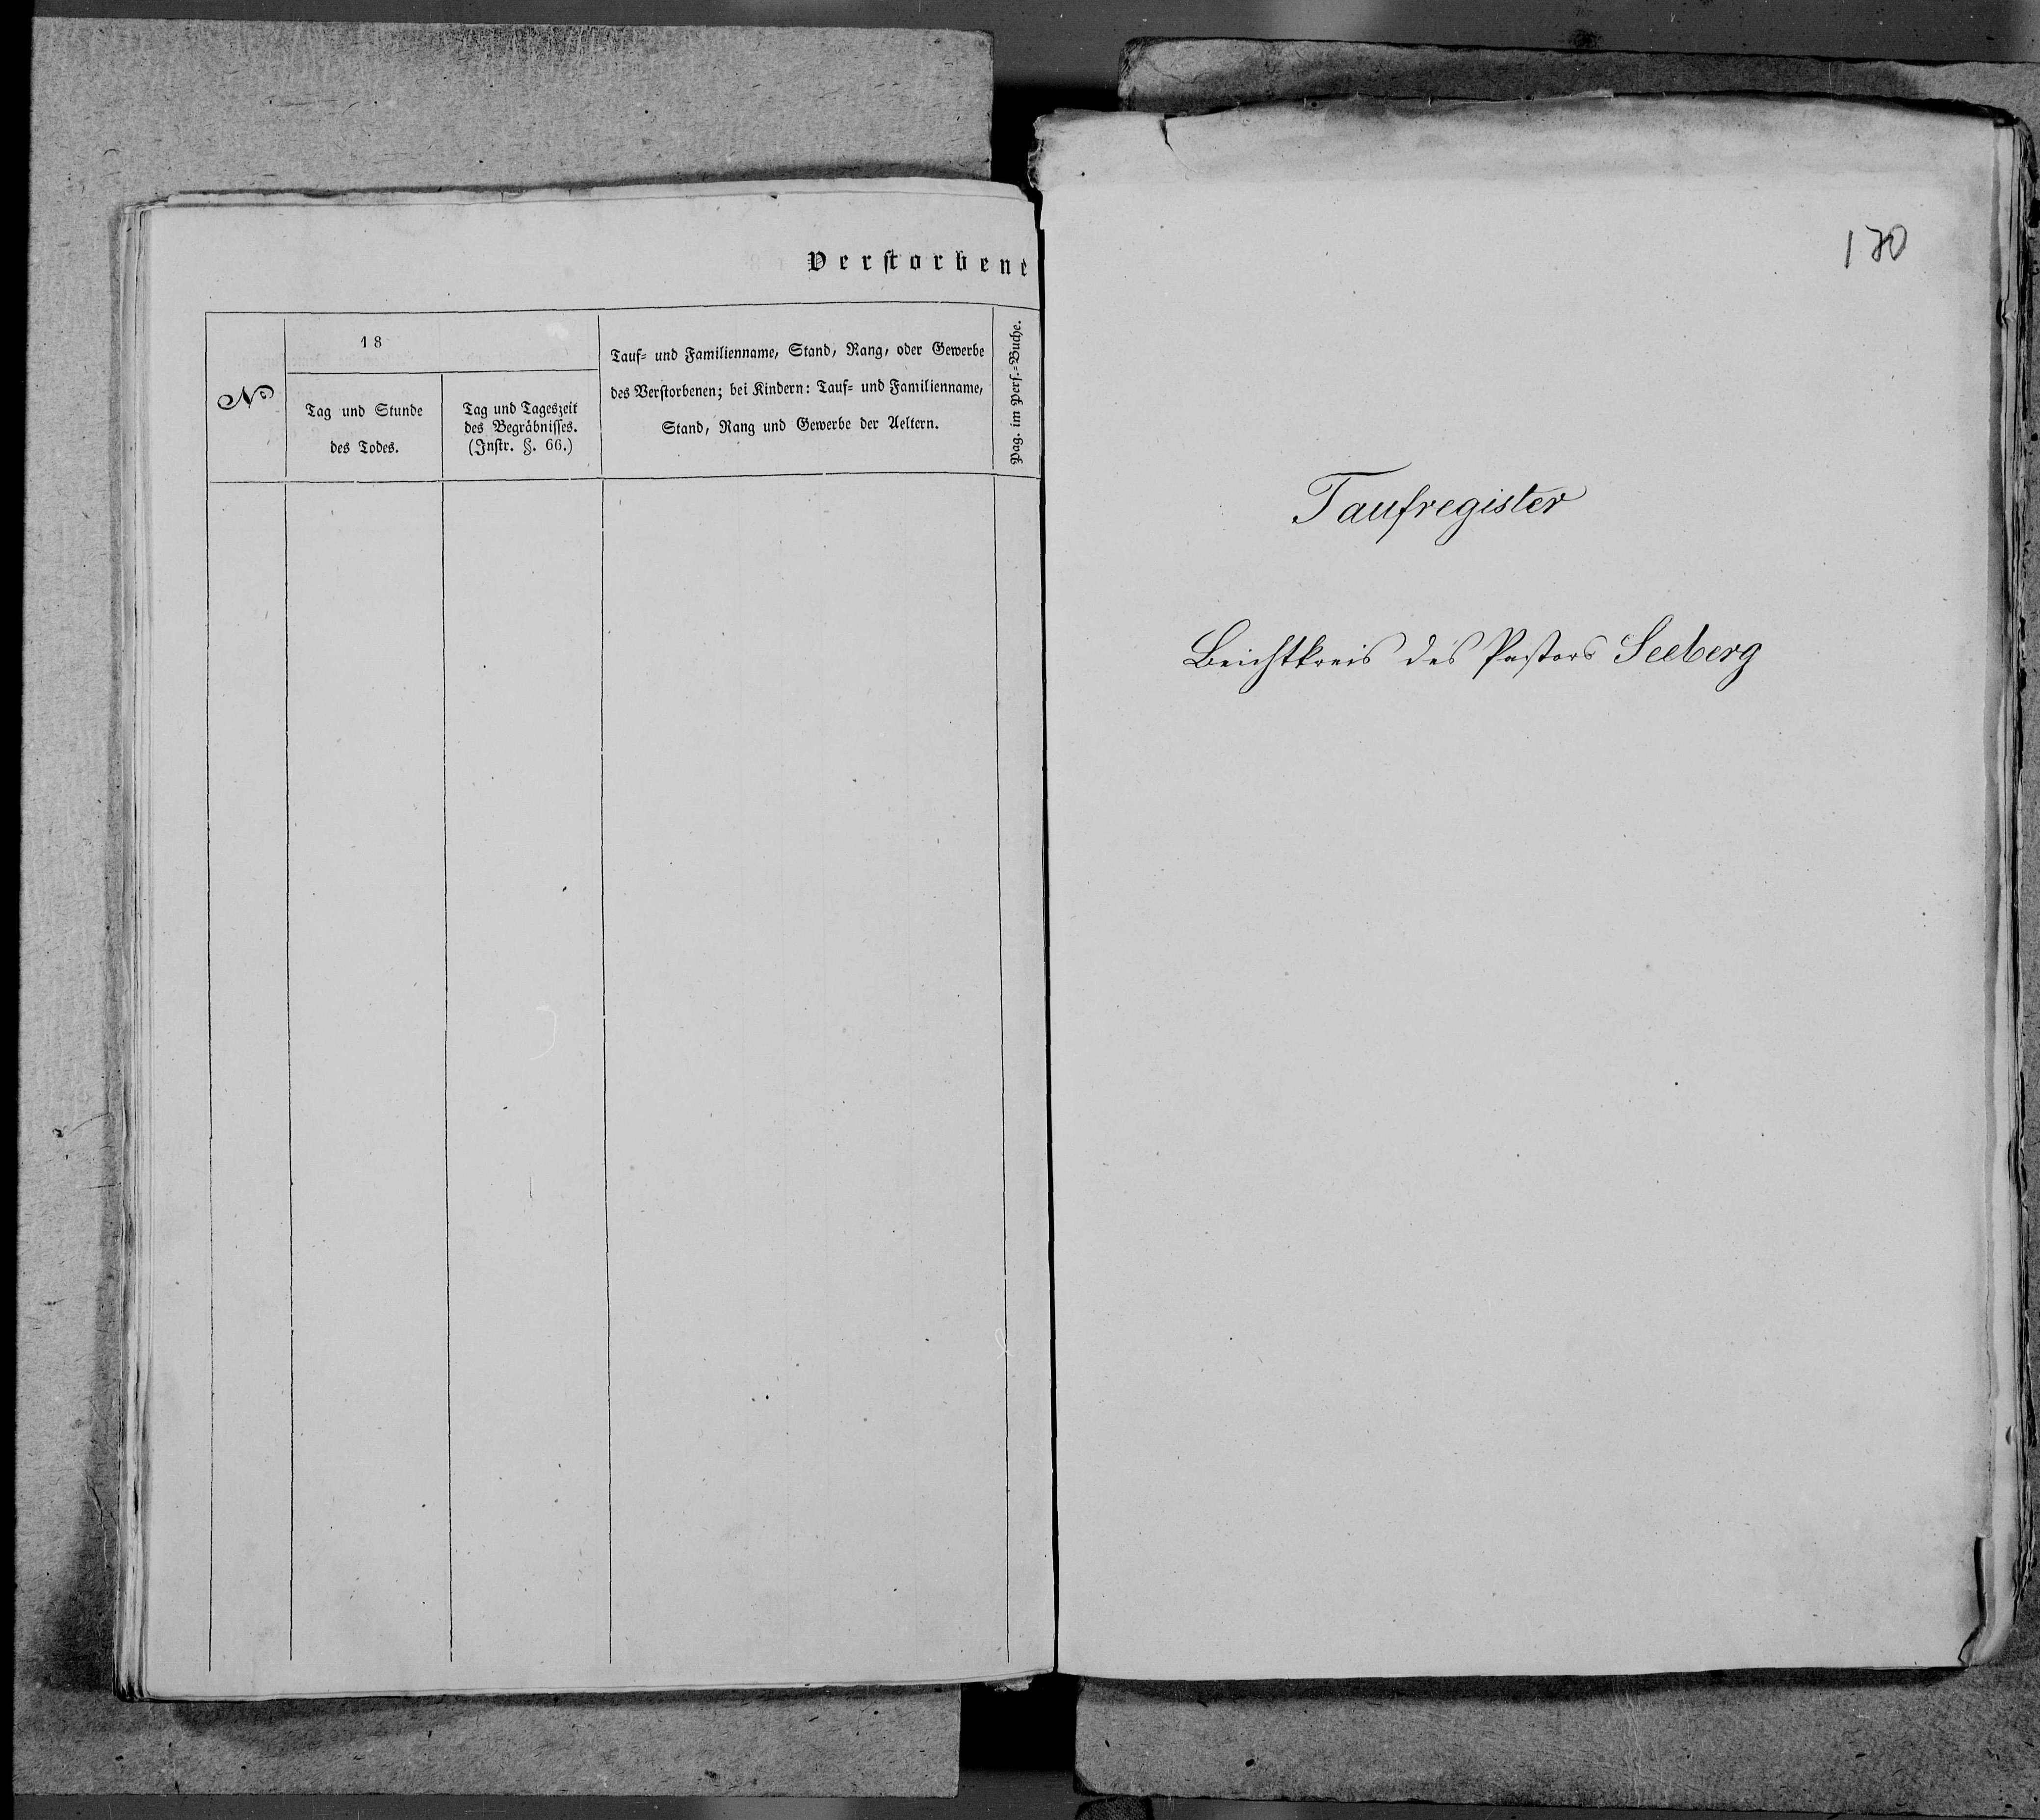 Verstorbene
№
18
Tag und Stunde
des Todes.
Tag und Tageszeit
des Begräbnisses.
(Instr. §. 66.)
Tauf= und Familienname, Stand, Rang, oder Gewerbe
des Verstorbenen; bei Kindern: Tauf= und Familienname,
Stand, Rang und Gewerbe der Aeltern.
Pag. im Pers.=Buche.
170
Taufregister
Beichtkreis des Pastors Seeberg